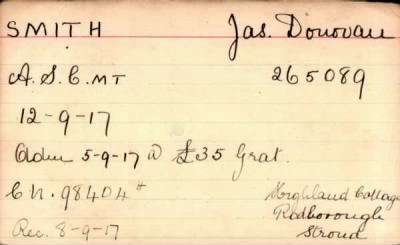 SMITH Jas. Donovan
A.S.C. MT 265089
12-9-17
Order 5-9-17 @ £35 Grat.
Ch. 98404 #
Highland Cottage
Rodborough
Stroud
Rec. 8-9-17